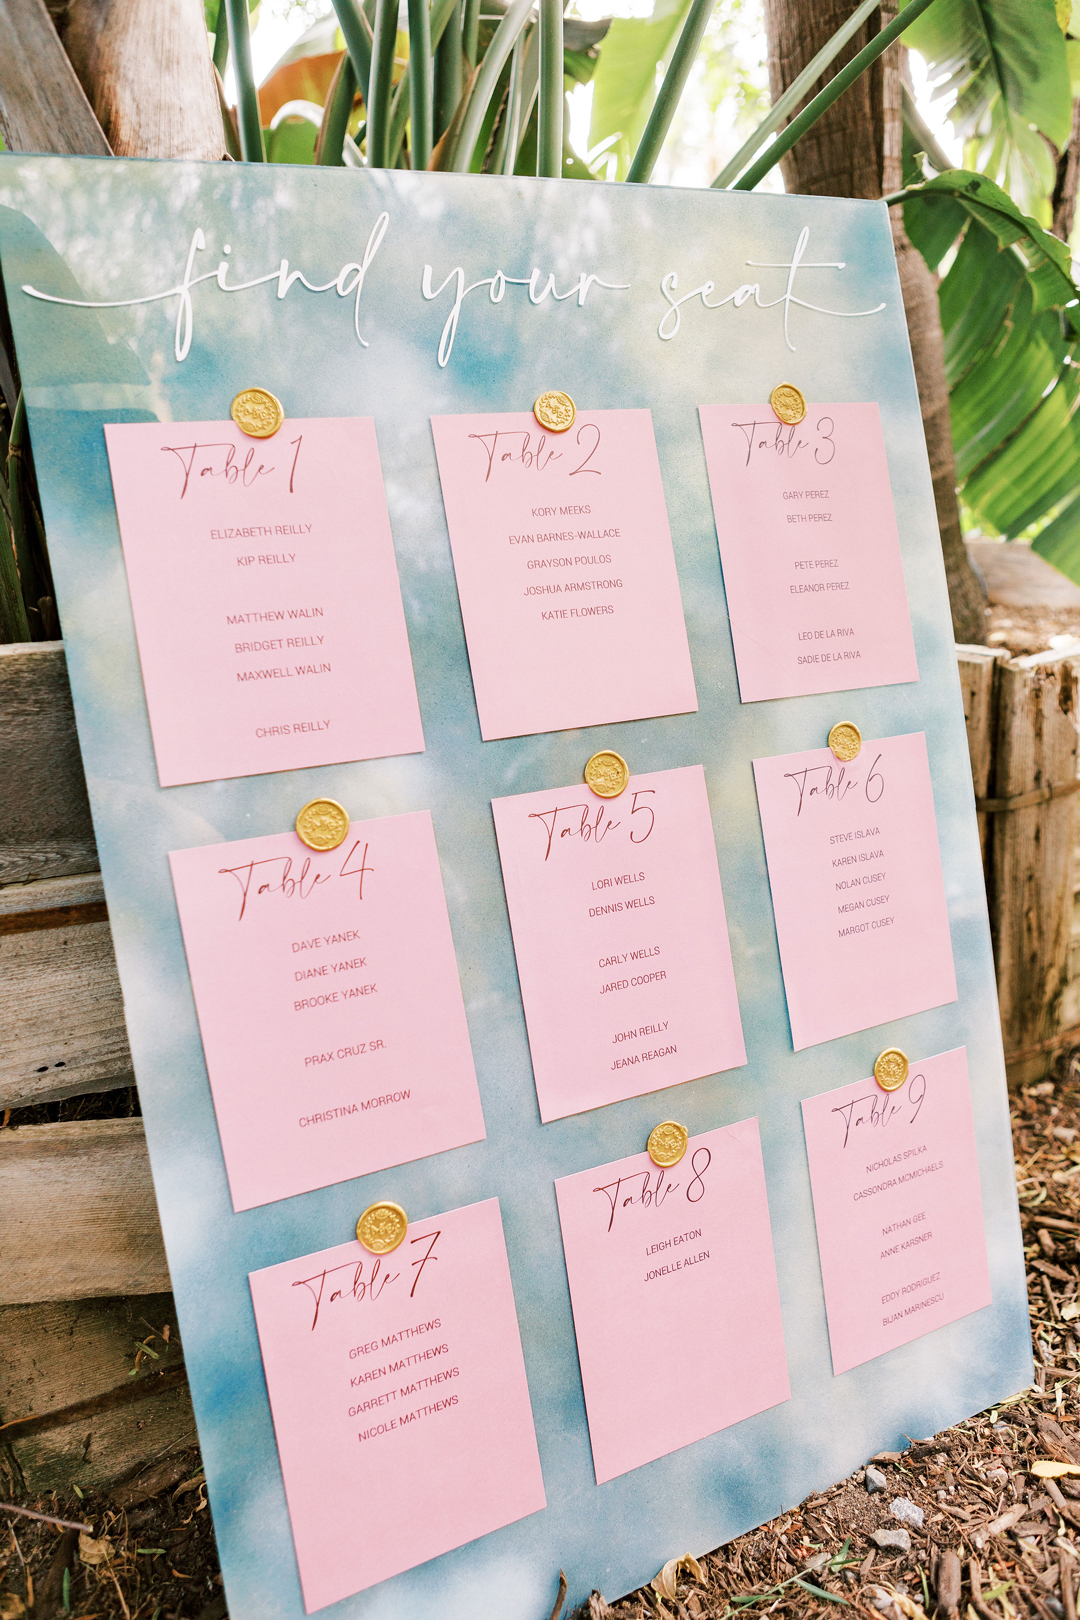 find your seat
Table 1
ELIZABETH REILLY
KIP REILLY
MATTHEW WALIN
BRIDGET REILLY
MAXWELL WALIN
CHRIS REILLY
Table 2
KORY MEEKS
EVAN BARNES-WALLACE
GRAYSON POULOS
JOSHUA ARMSTRONG
KATIE FLOWERS
Table 3
GARY PEREZ
BETH PEREZ
PETE PEREZ
ELEANOR PEREZ
LEO DE LA RIVA
SADIE DE LA RIVA
Table 4
DAVE YANEK
DIANE YANEK
BROOKE YANEK
PRAX CRUZ SR.
CHRISTINA MORROW
Table 5
LORI WELLS
DENNIS WELLS
CARLY WELLS
JARED COOPER
JOHN REILLY
JEANA REAGAN
Table 6
STEVE ISLAVA
KAREN ISLAVA
NOLAN CUSEY
MEGAN CUSEY
MARGOT CUSEY
Table 7
GREG MATTHEWS
KAREN MATTHEWS
GARRETT MATTHEWS
NICOLE MATTHEWS
Table 8
LEIGH EATON
JONELLE ALLEN
Table 9
NICHOLAS SPILKA
CASSONDRA MCMICHAELS
NATHAN GEE
ANNE KARSNER
EDDY RODRIGUEZ
BIJAN MARINESCU